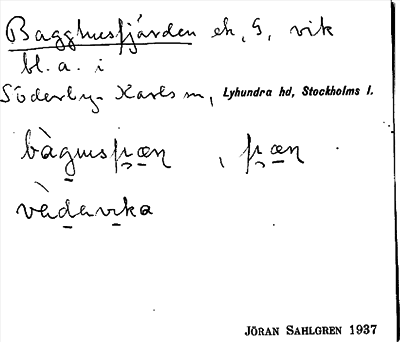 Bagghusfjärden ek, G, vik
bl. a. i
Söderby-Karls sn, Lyhundra hd, Stockholms l.
bàgusfjæṇ , fjæṇ
vèdavika
JÖRAN SAHLGREN 1937